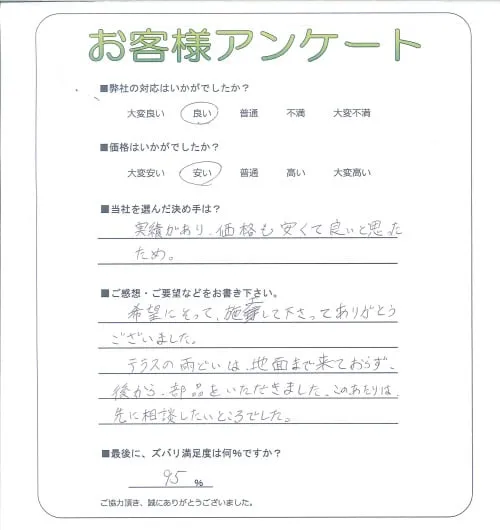 お客様アンケート
■弊社の対応はいかがでしたか？
大変良い 良い 普通 不満 大変不満
■価格はいかがでしたか？
大変安い 安い 普通 高い 大変高い
■当社を選んだ決め手は？
実績があり、価格も安くて良いと思った
ため。
■ご感想・ご要望などをお書き下さい。
希望にそって、施工して下さってありがとう
ございました。
テラスの雨どいは、地面まで来ておらず、
後から、部品をいただきました。このあたりは、
先に相談したいところでした。
■最後に、ズバリ満足度は何％ですか？
95 ％
ご協力頂き、誠にありがとうございました。